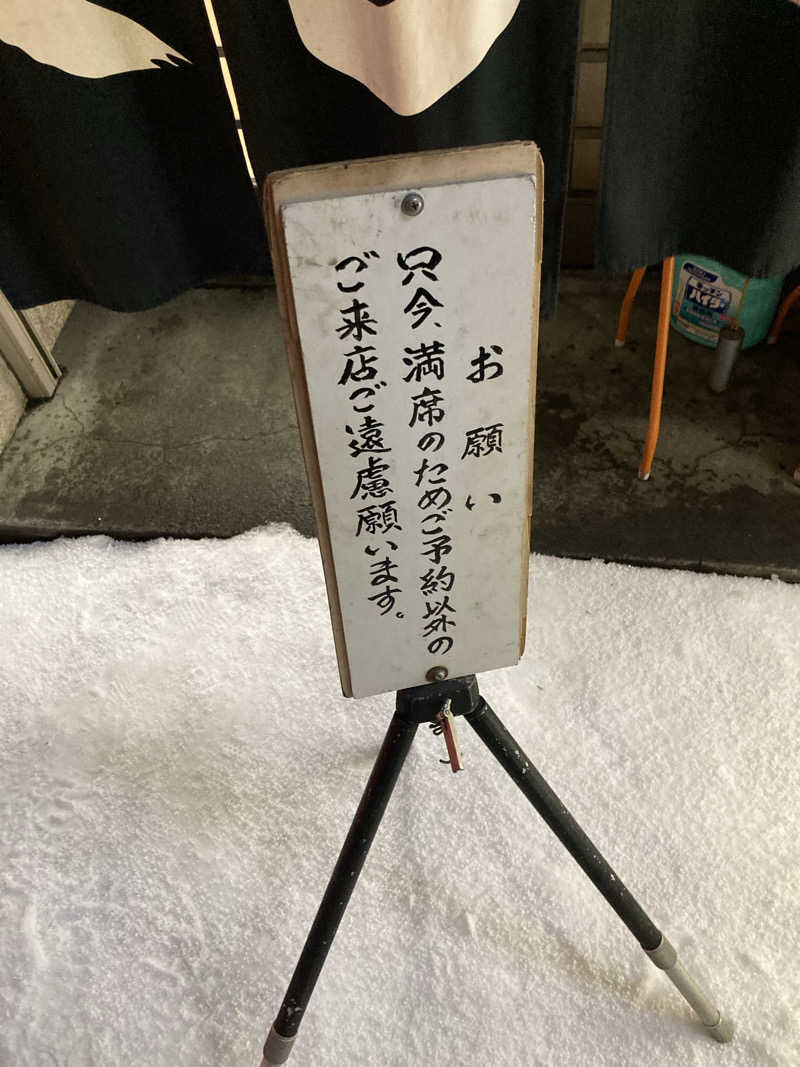 お願い
只今、満席のためご予約以外の
ご来店ご遠慮願います。
キッチン
ハイター